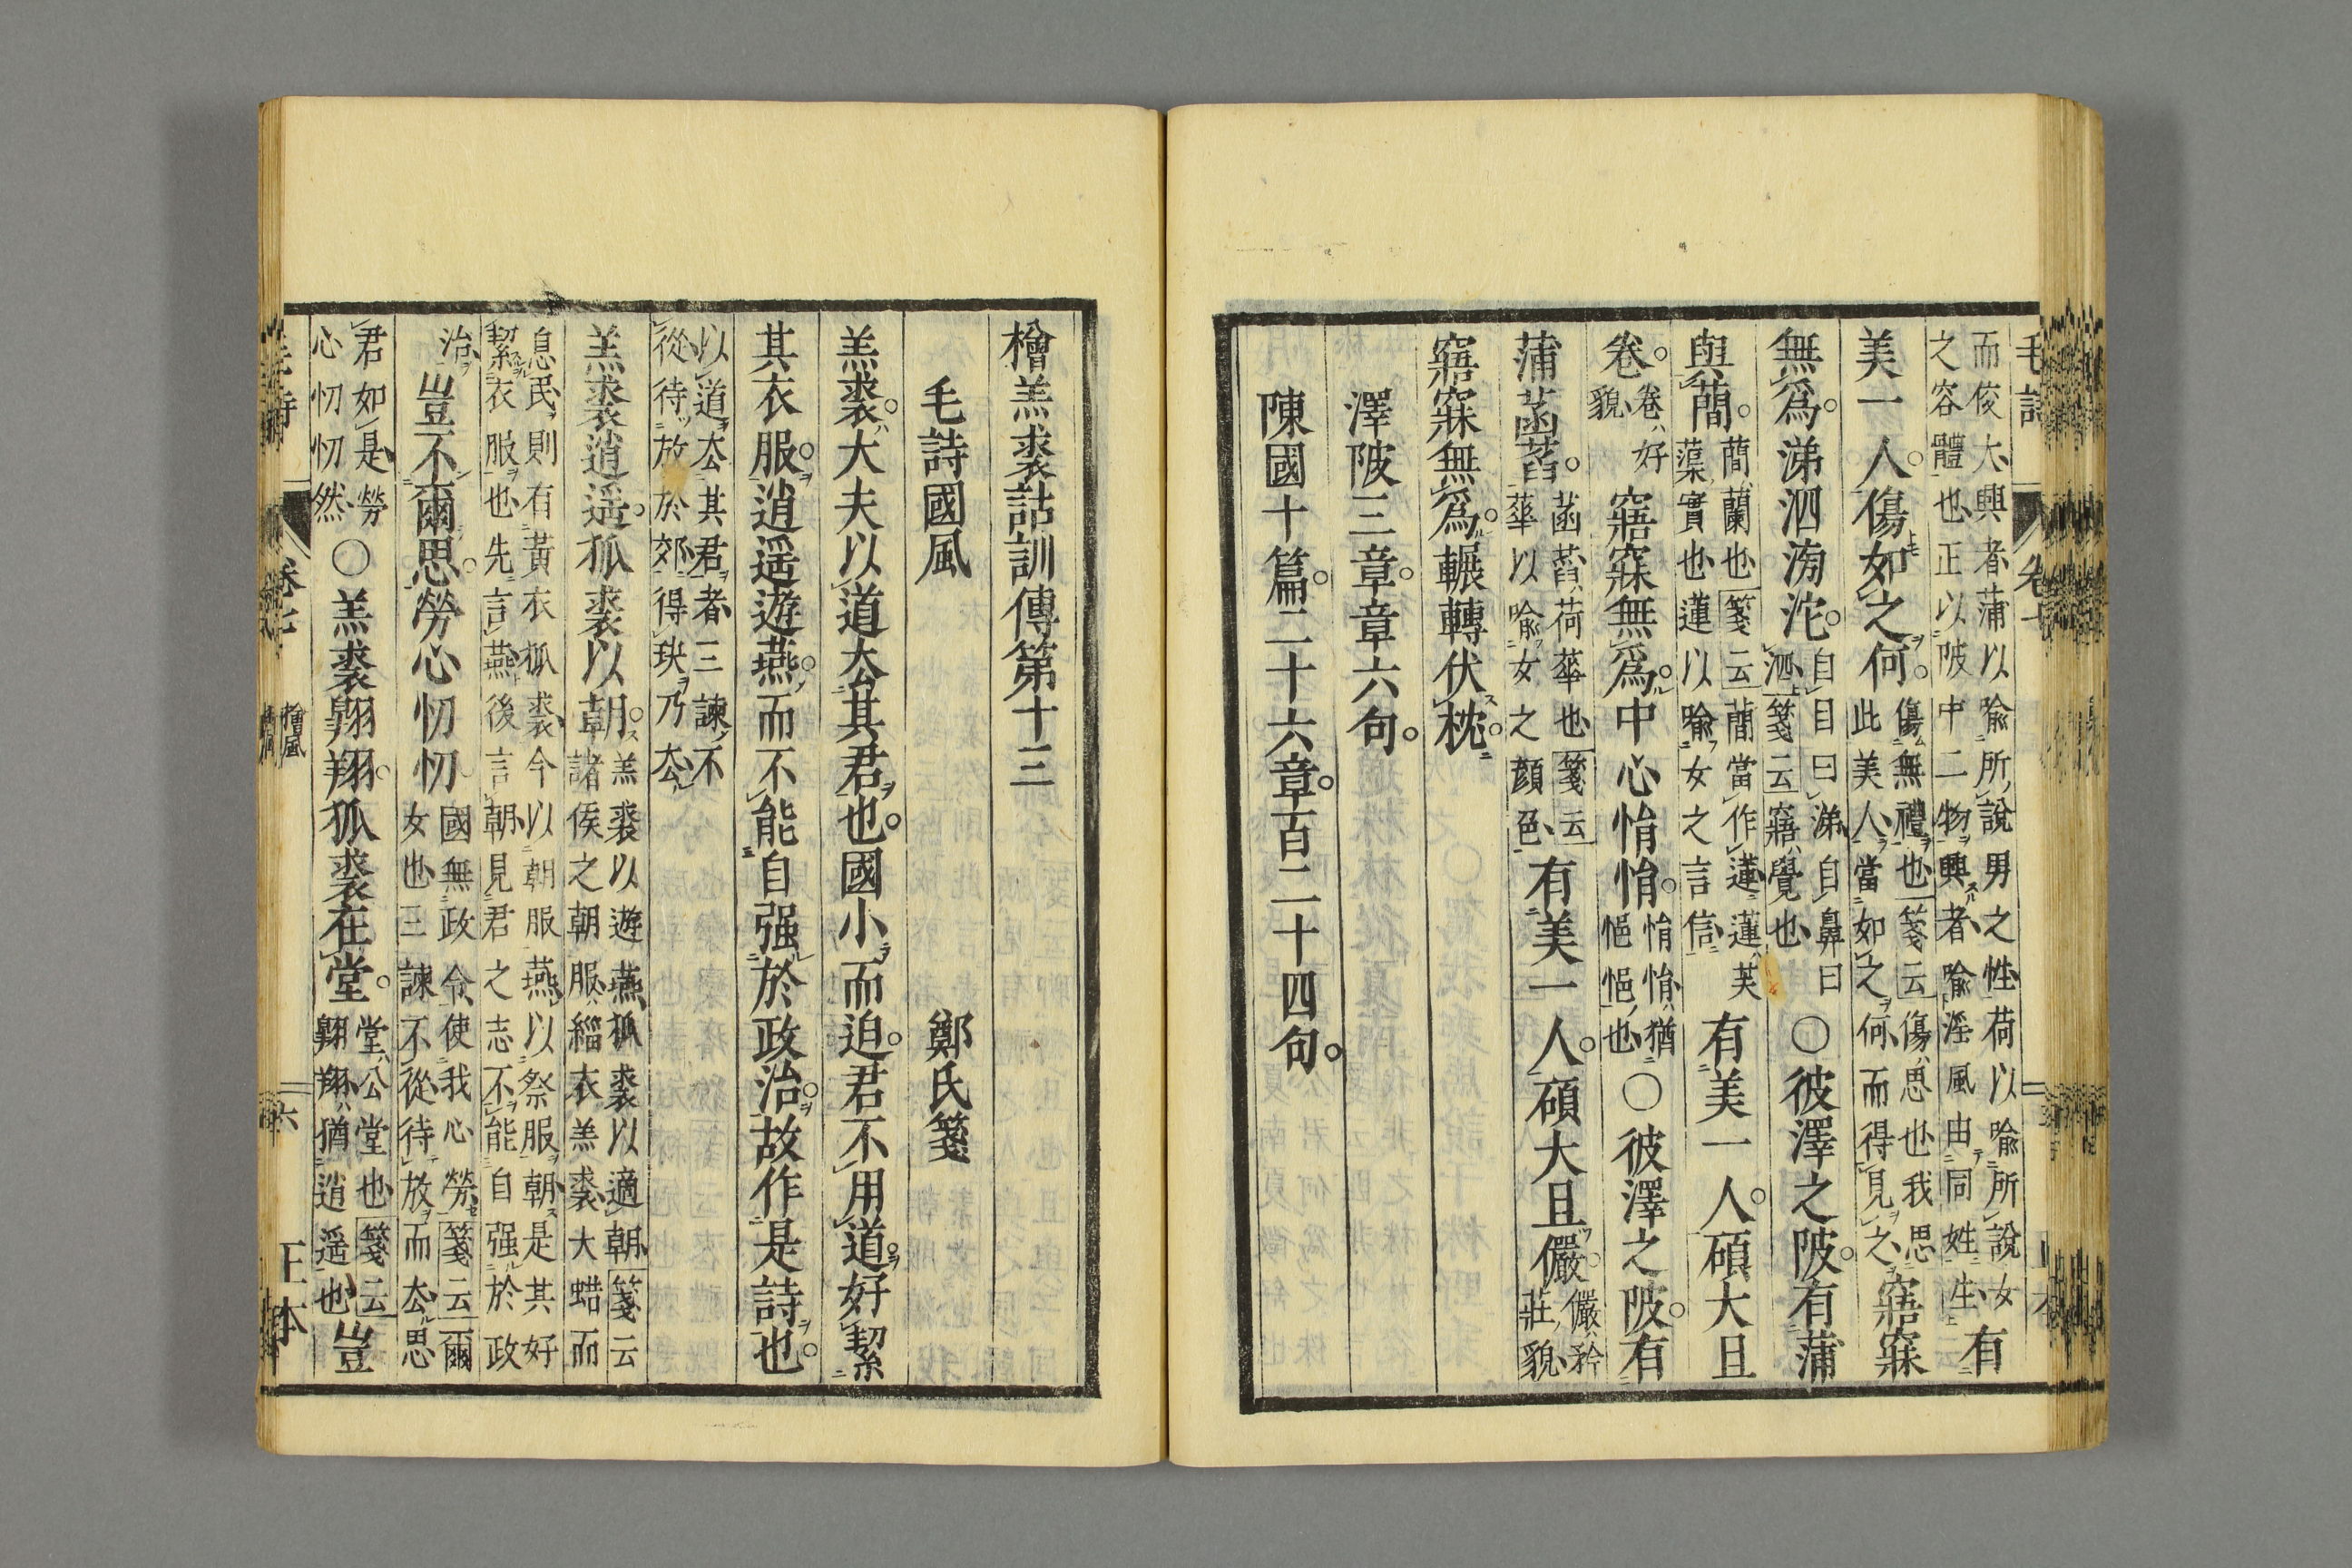 而俊大興者蒲以喩所說男之性荷以喩所說女
之容體也正以陂中二物興者喩淫風由同姓生 有
美一人傷如之何 傷無禮也箋云傷思也我思
此美人當如之何而得見之 寤寐
無爲涕泗滂沱 自目曰涕自鼻曰
泗箋云寤覺也 ○彼澤之陂有蒲
與蕑 蕑蘭也箋云蕑當作蓮蓮芙
蕖實也蓮以喩女之言信 有美一人碩大且
卷 卷好
貌 寤寐無爲中心悁悁 悁悁猶
悒悒也 ○彼澤之陂有
蒲菡萏 菡萏荷華也箋云
華以喩女之顔色 有美一人碩大且儼 儼矜
莊貌
寤寐無爲輾轉伏枕
澤陂三章章六句
陳國十篇二十六章百二十四句
檜羔裘詁訓傳第十三
毛詩國風 鄭氏箋
羔裘大夫以道去其君也國小而迫君不用道好絜
其衣服逍遥遊燕而不能自强於政治故作是詩也
以道去其君者三諫不
從待放於郊得玦乃去
羔裘逍遥狐裘以朝 羔裘以遊燕狐裘以適朝箋云
諸侯之朝服緇衣羔裘大蜡而
息民則有黃衣狐裘今以朝服燕以祭服朝是其好
絜衣服也先言燕後言朝見君之志不能自强於政
治 豈不爾思勞心忉忉 國無政令使我心勞箋云爾
女也三諫不從待放而去思
君如是勞
心忉忉然 ○羔裘翺翔狐裘在堂 堂公堂也箋云
翺翔猶逍遥也 豈
卷七
檜風
六